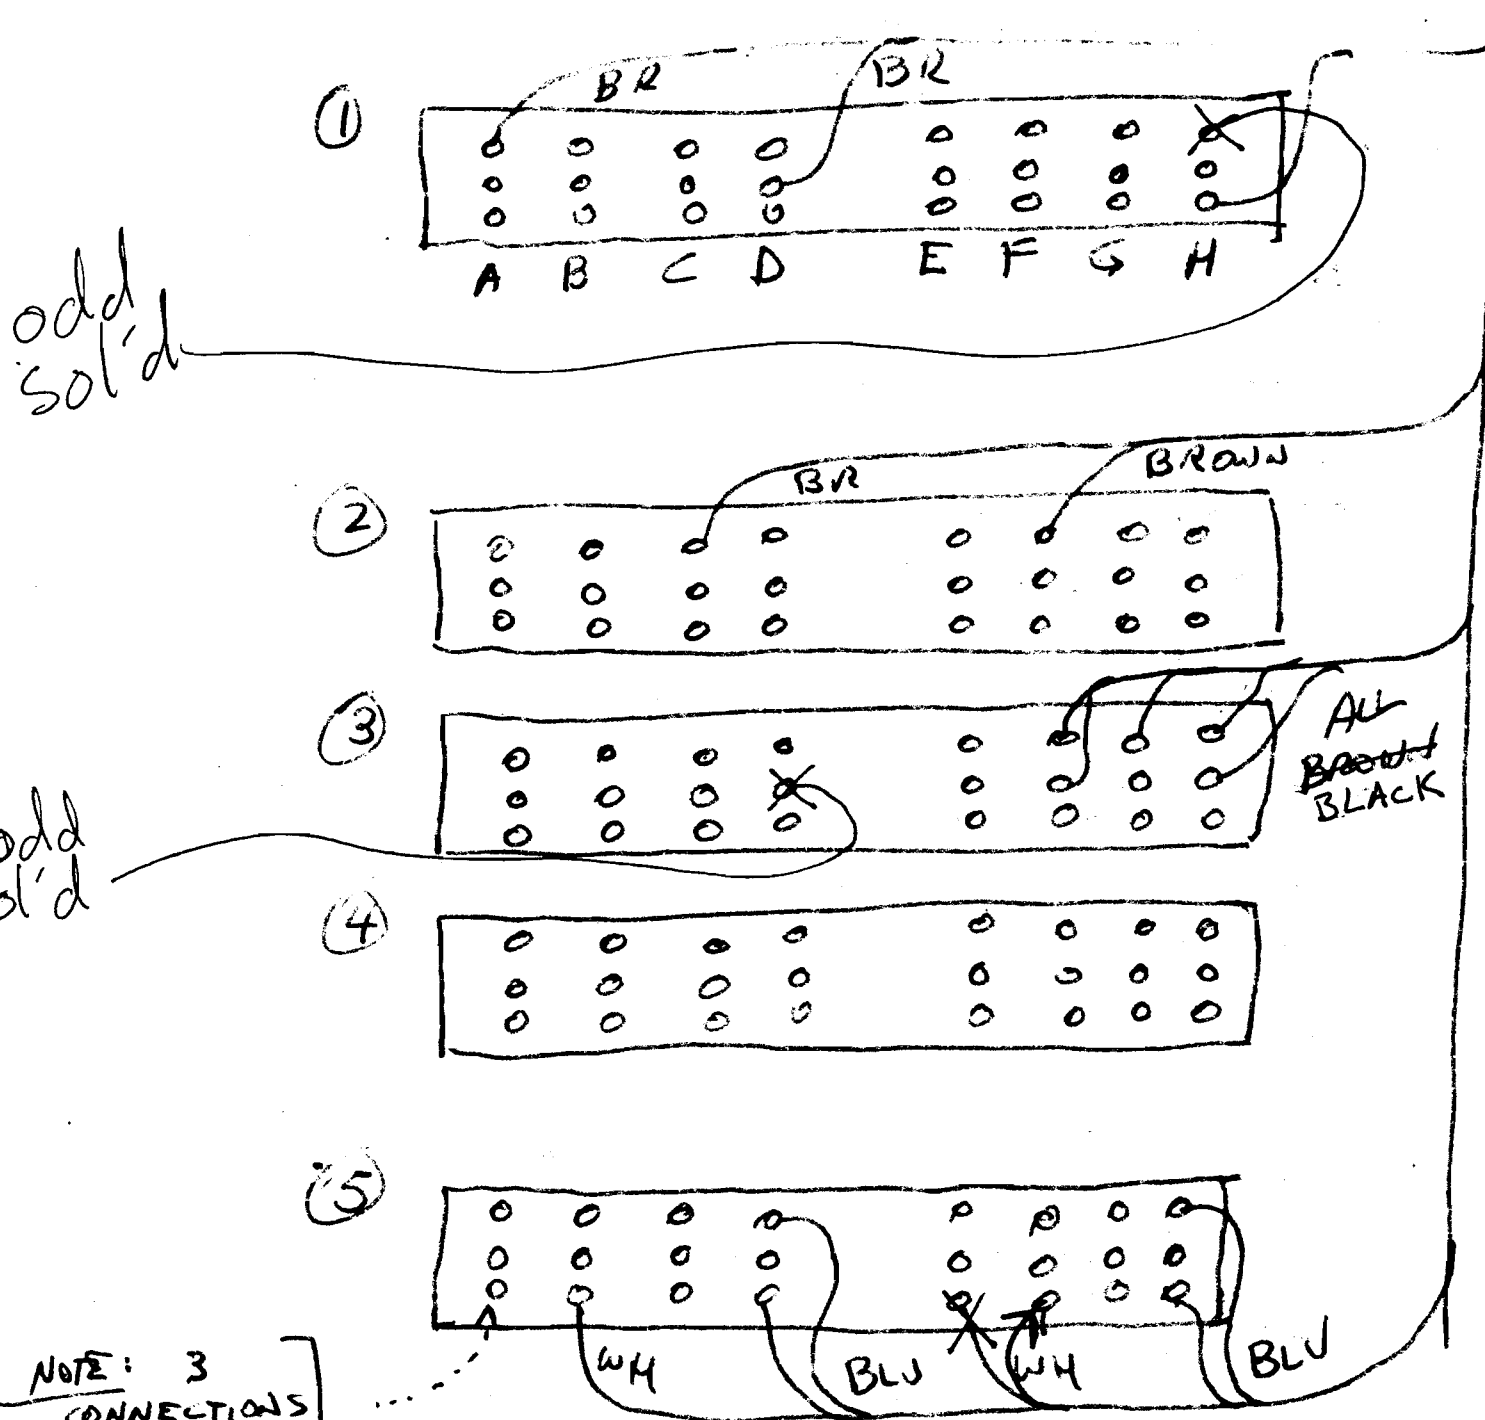 BR BR
1
A B C D E F G H
odd
sol'd
BR BROWN
2
3
ALL
BROWN
BLACK
odd
sol'd
4
5
WH BLU WH BLU
NOTE: 3
CONNECTIONS